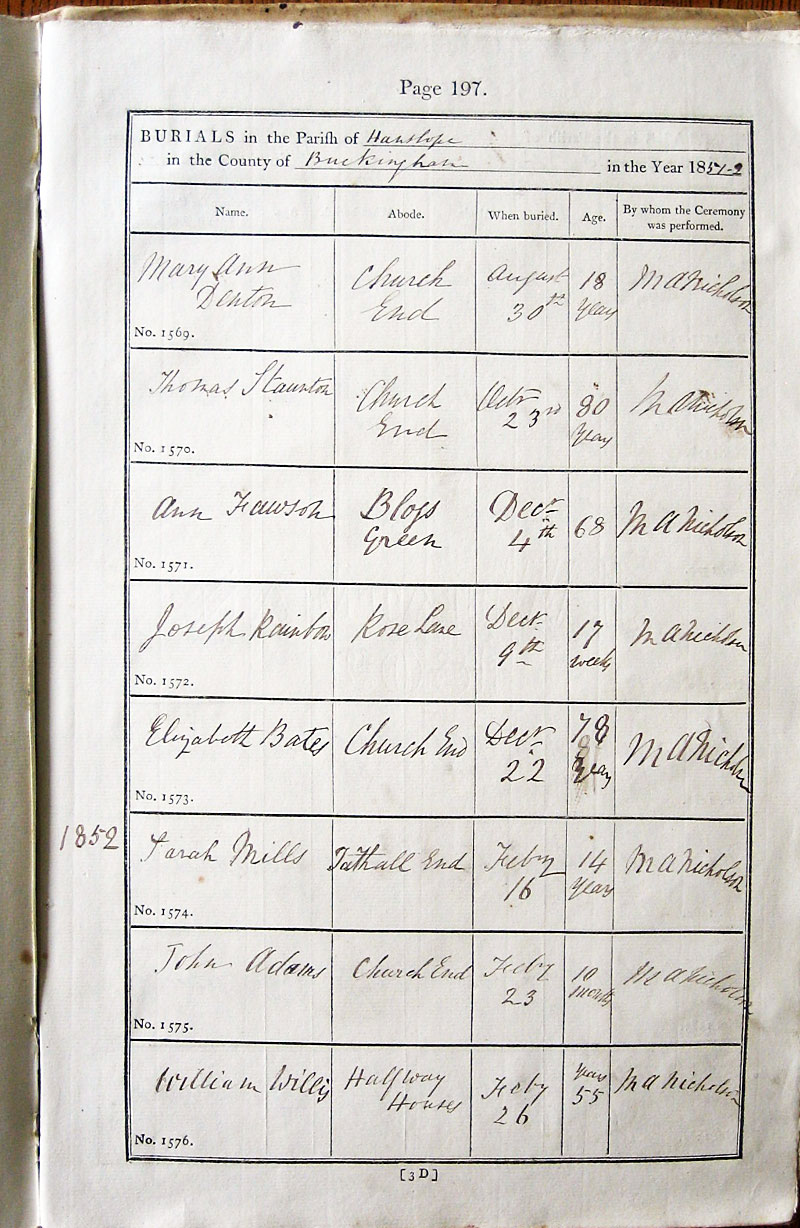 Page 197.
BURIALS in the Parish of Hanslope
in the County of Buckingham in the Year 1851-2
Name. Abode. When buried. Age. By whom the Ceremony was performed.
Mary Ann Church August 18 M A Nicholson
Denton End 30th Years
No. 1569.
Thomas Staunton Church Octr 80 M A Nicholson
End 23rd Years
No. 1570.
Ann Fawson Blogs Decr 68 M A Nicholson
Green 4th
No. 1571.
Joseph Rainbow Rose Lane Decr 17 M A Nicholson
9th weeks
No. 1572.
Elizabeth Bates Church End Decr 78 M A Nicholson
22 Years
No. 1573.
1852 Sarah Mills Tathall End Feby 14 M A Nicholson
16 Years
No. 1574.
John Adams Church End Feby 10 M A Nicholson
23 months
No. 1575.
William Willis Halfway Feby Years M A Nicholson
Houses 26 55
No. 1576.
[3D]